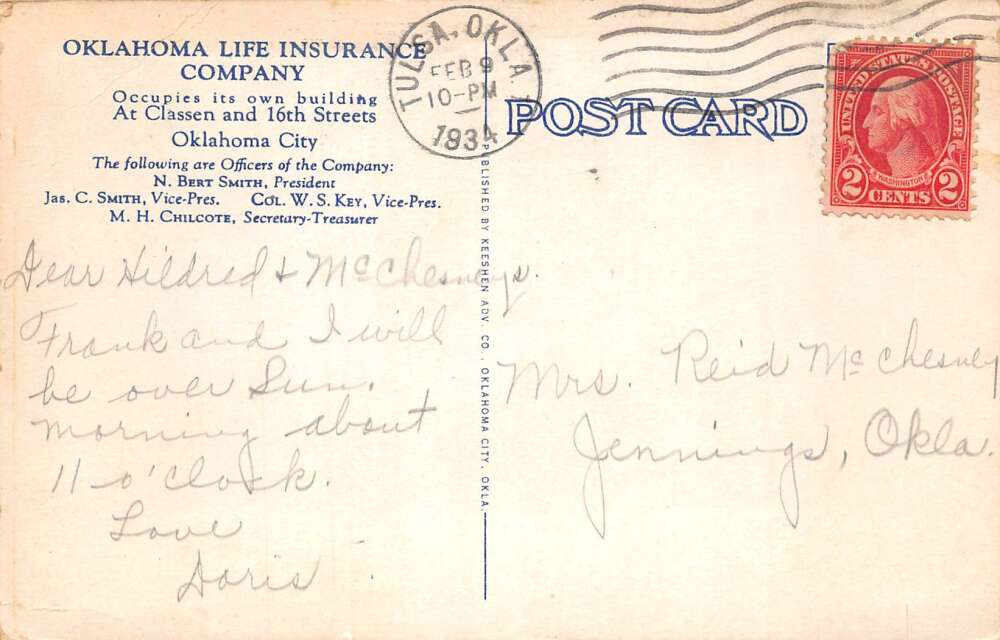 OKLAHOMA LIFE INSURANCE
COMPANY
Occupies its own building
At Classen and 16th Streets
Oklahoma City
The following are Officers of the Company:
N. BERT SMITH, President
JAS. C. SMITH, Vice-Pres. COL. W. S. KEY, Vice-Pres.
M. H. CHILCOTE, Secretary-Treasurer
Dear Hildred & McChesneys.
Frank and I will
be over Sun.
morning about
11 o'clock.
Love
Doris
TULSA, OKLA.
FEB 9
10-PM
1934
PUBLISHED BY KEESHEN ADV. CO., OKLAHOMA CITY, OKLA.
POST CARD
UNITED STATES POSTAGE
WASHINGTON
2 CENTS 2
Mrs. Reid McChesney
Jennings, Okla.